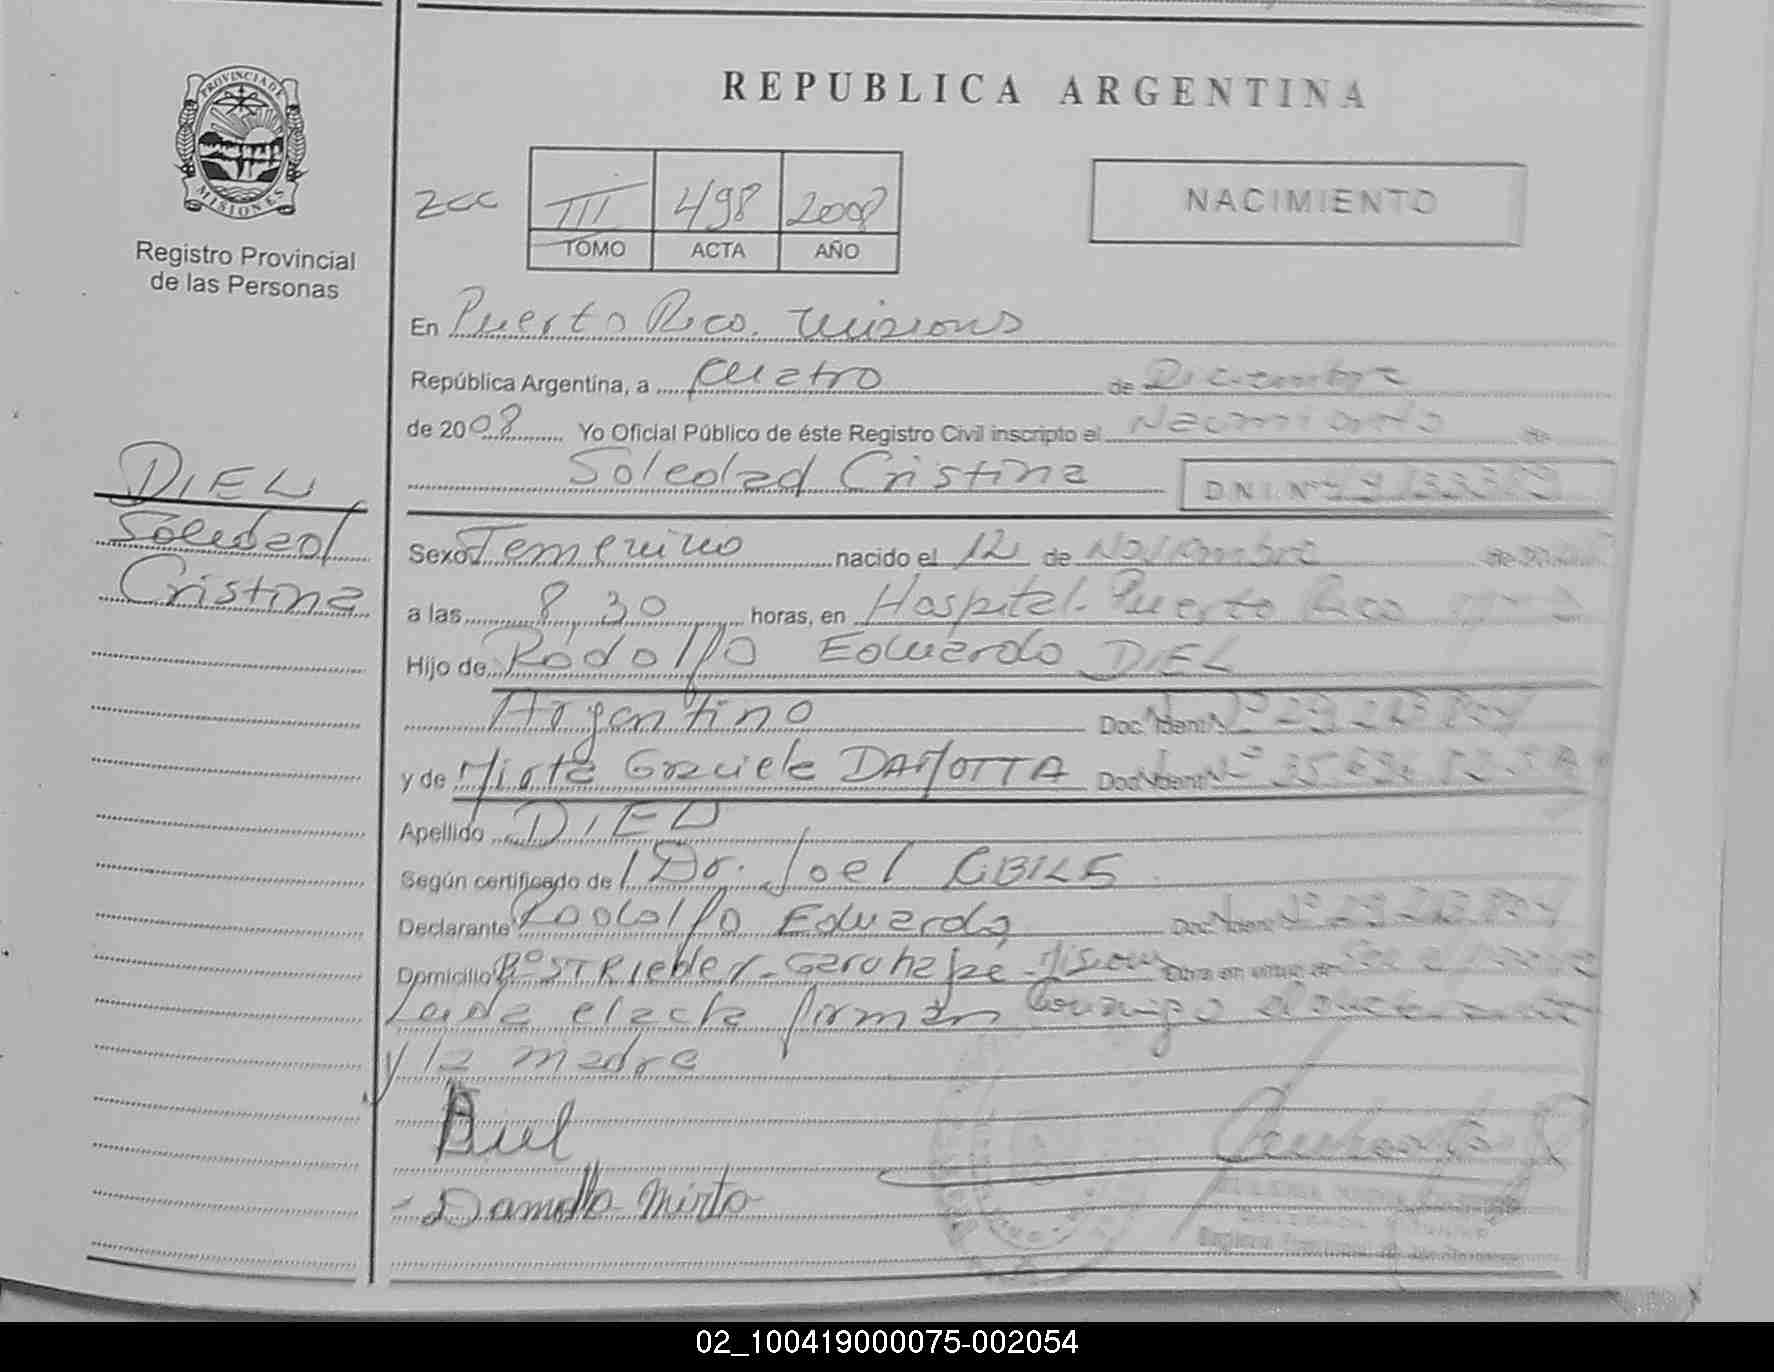 PROVINCIA DE
MISIONES
Registro Provincial
de las Personas
DIEL
Soledad
Cristina
REPUBLICA ARGENTINA
2cc
III 498 2008
TOMO ACTA AÑO
NACIMIENTO
En Puerto Rico. Misiones
República Argentina, a cuatro de Diciembre
de 2008 Yo Oficial Público de éste Registro Civil inscripto el Nacimiento de
Soledad Cristina D.N.I. Nº
Sexo Femenino nacido el 12 de Noviembre
a las 8,30 horas, en Hospital. Puerto Rico
Hijo de Rodolfo Eduardo DIEL
Argentino Doc. Ident. Nº
y de Mirta Graciela Doc. Ident. Nº
Apellido DIEL
Según certificado de Dr. Joel
Declarante Rodolfo Eduardo Doc. Ident. Nº
Domicilio Garuhape - Misiones Obra en virtud de
Leida el acta firman conmigo
y la madre
Diel
Mirta
02_100419000075-002054